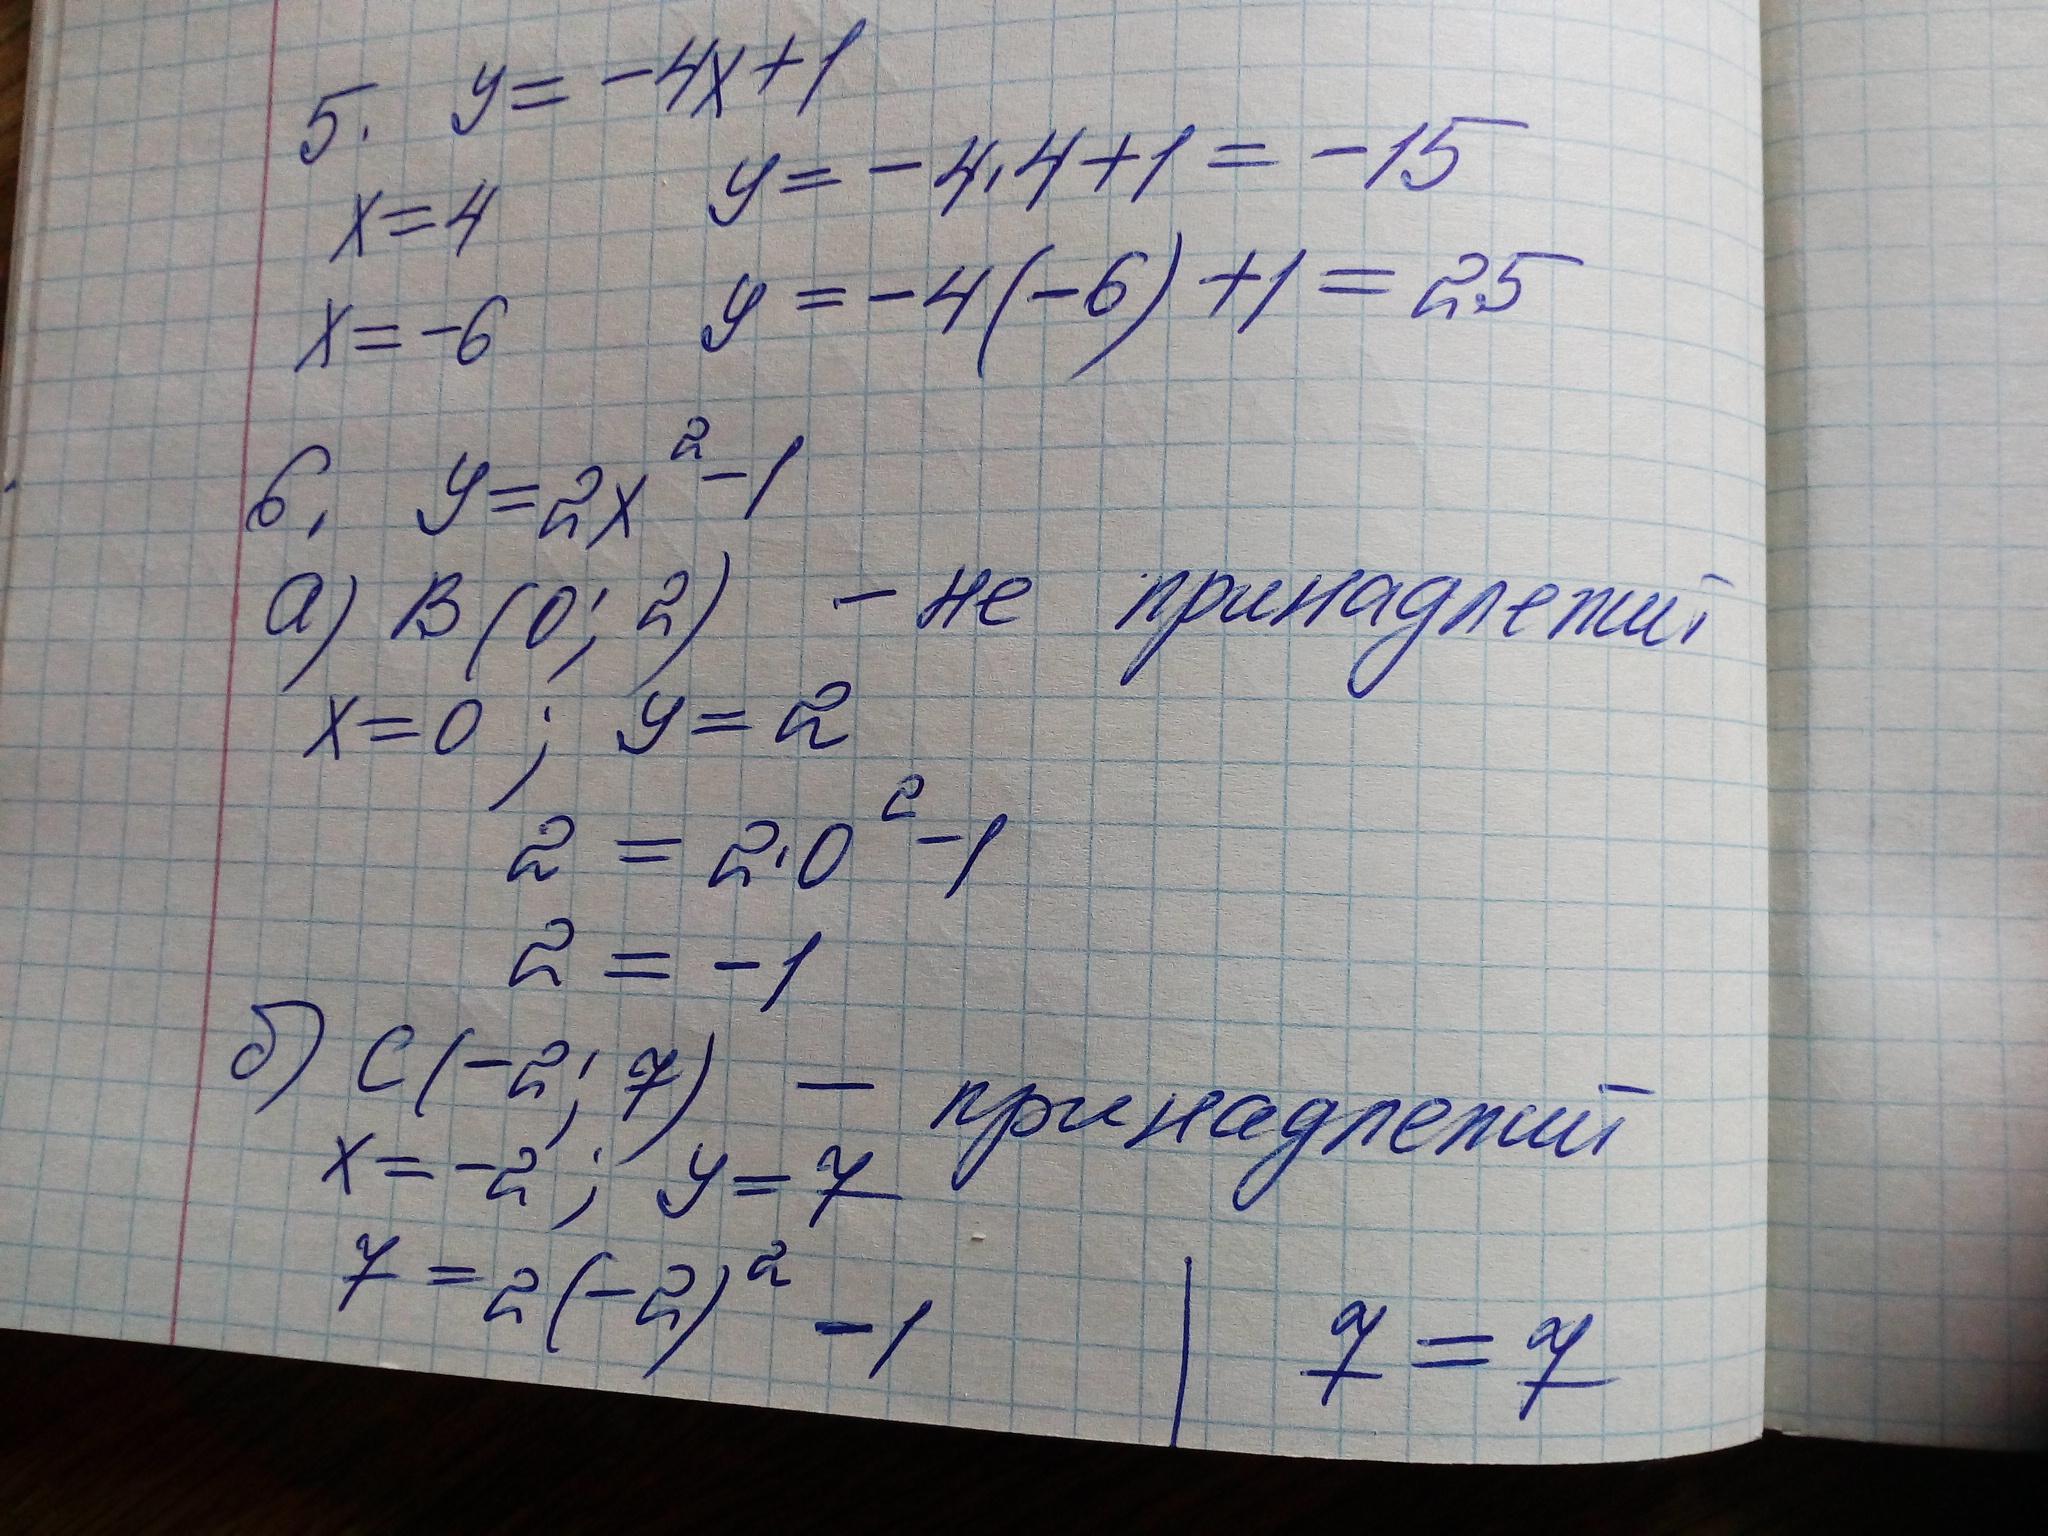 5. y = -4x+1
x=4 y = -4·4+1 = -15
x=-6 y = -4(-6)+1 = 25
6. y=2x²-1
а) B(0; 2) - не принадлежит
x=0; y=2
2 = 2·0²-1
2 = -1
б) C(-2; 7) - принадлежит
x=-2; y=7
7 = 2(-2)² -1 | 7=7